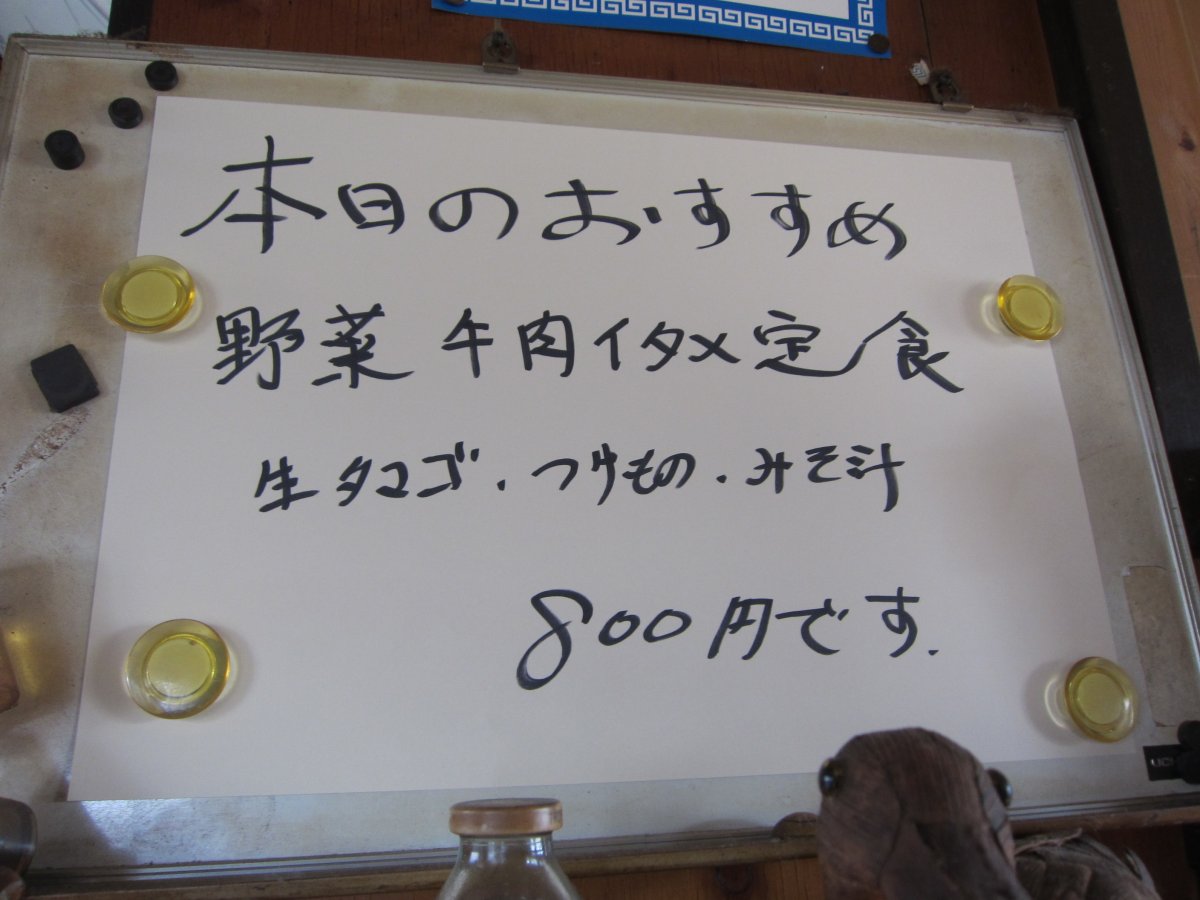 本日のおすすめ
野菜 牛肉イタメ定食
生タマゴ.つけもの.みそ汁
800円です.